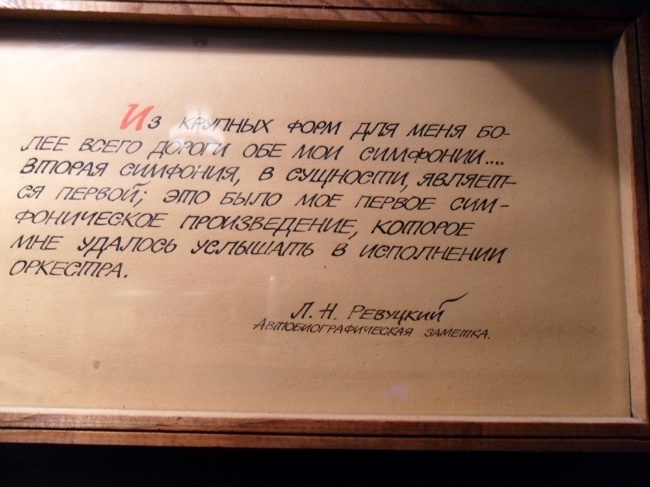 Из крупных форм для меня бо-
лее всего дороги обе мои симфонии....
Вторая симфония, в сущности, являет-
ся первой; это было мое первое сим-
фоническое произведение, которое
мне удалось услышать в исполнении
оркестра.
Л. Н. Ревуцкий
Автобиографическая заметка.